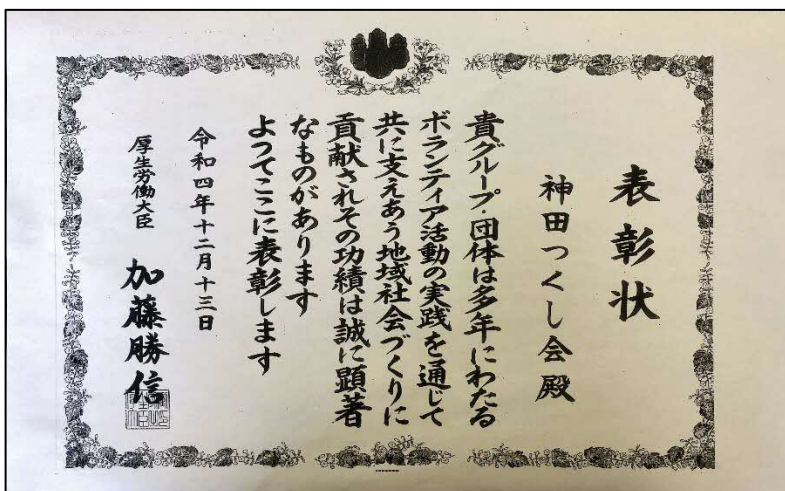 表彰状
神田つくし会殿
貴グループ・団体は多年にわたる
ボランティア活動の実践を通じて
共に支えあう地域社会づくりに
貢献されその功績は誠に顕著
なものがあります
よつてここに表彰します
令和四年十二月十三日
厚生労働大臣 加藤勝信